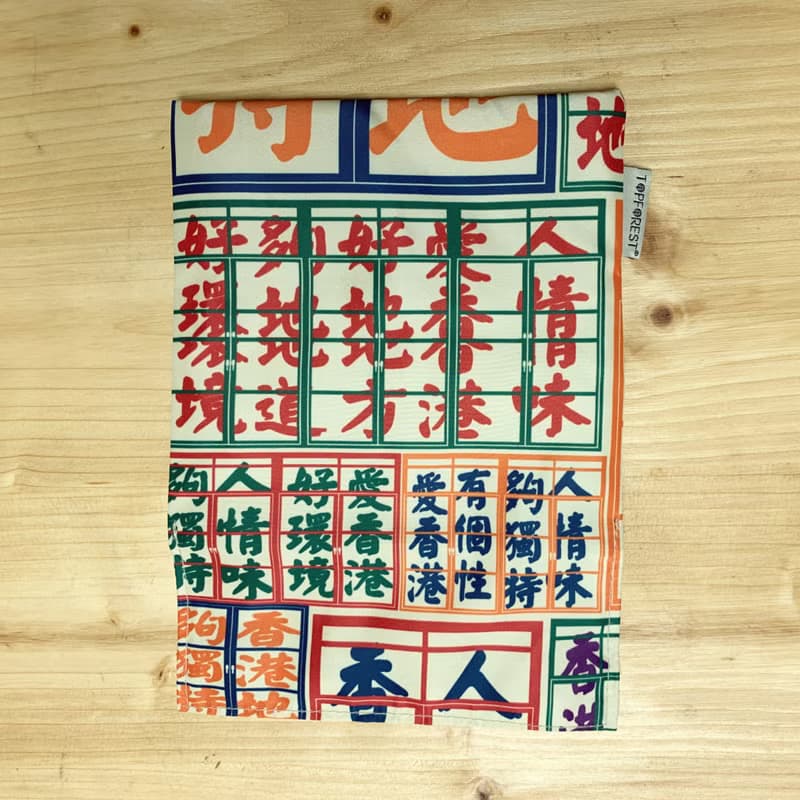 特地
地
TOPFOREST®
人情味
愛香港
好地方
夠地道
好環境
人情味
夠獨特
有個性
愛香港
愛香港
好環境
人情味
夠獨特
香港
人
香
香港地
夠獨特